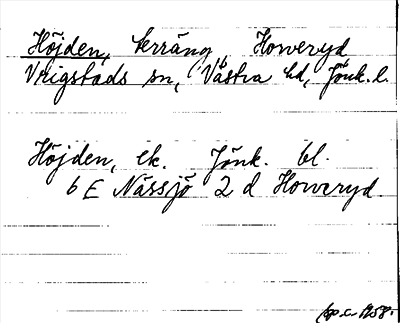 Höjden, terräng, Howeryd
Vrigstads sn, Västra hd, Jönk. l.
Höjden, ek. Jönk. bl.
6 E Nässjö 2 d Howeryd.
1958.